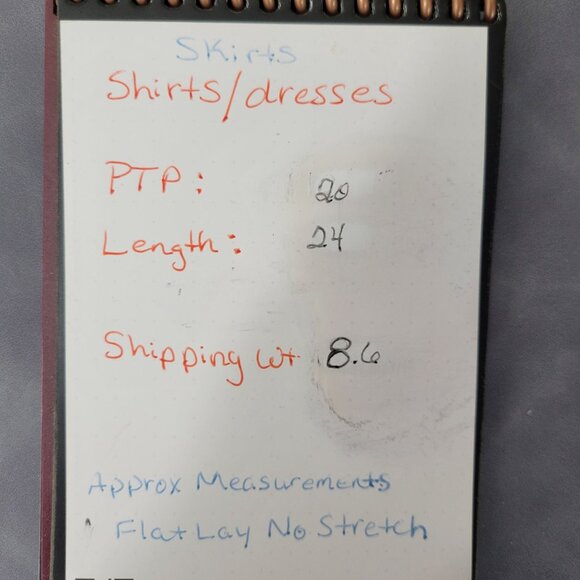 Skirts
Shirts/dresses
PTP: 20
Length: 24
Shipping Wt 8.6
Approx Measurements
Flat Lay No Stretch